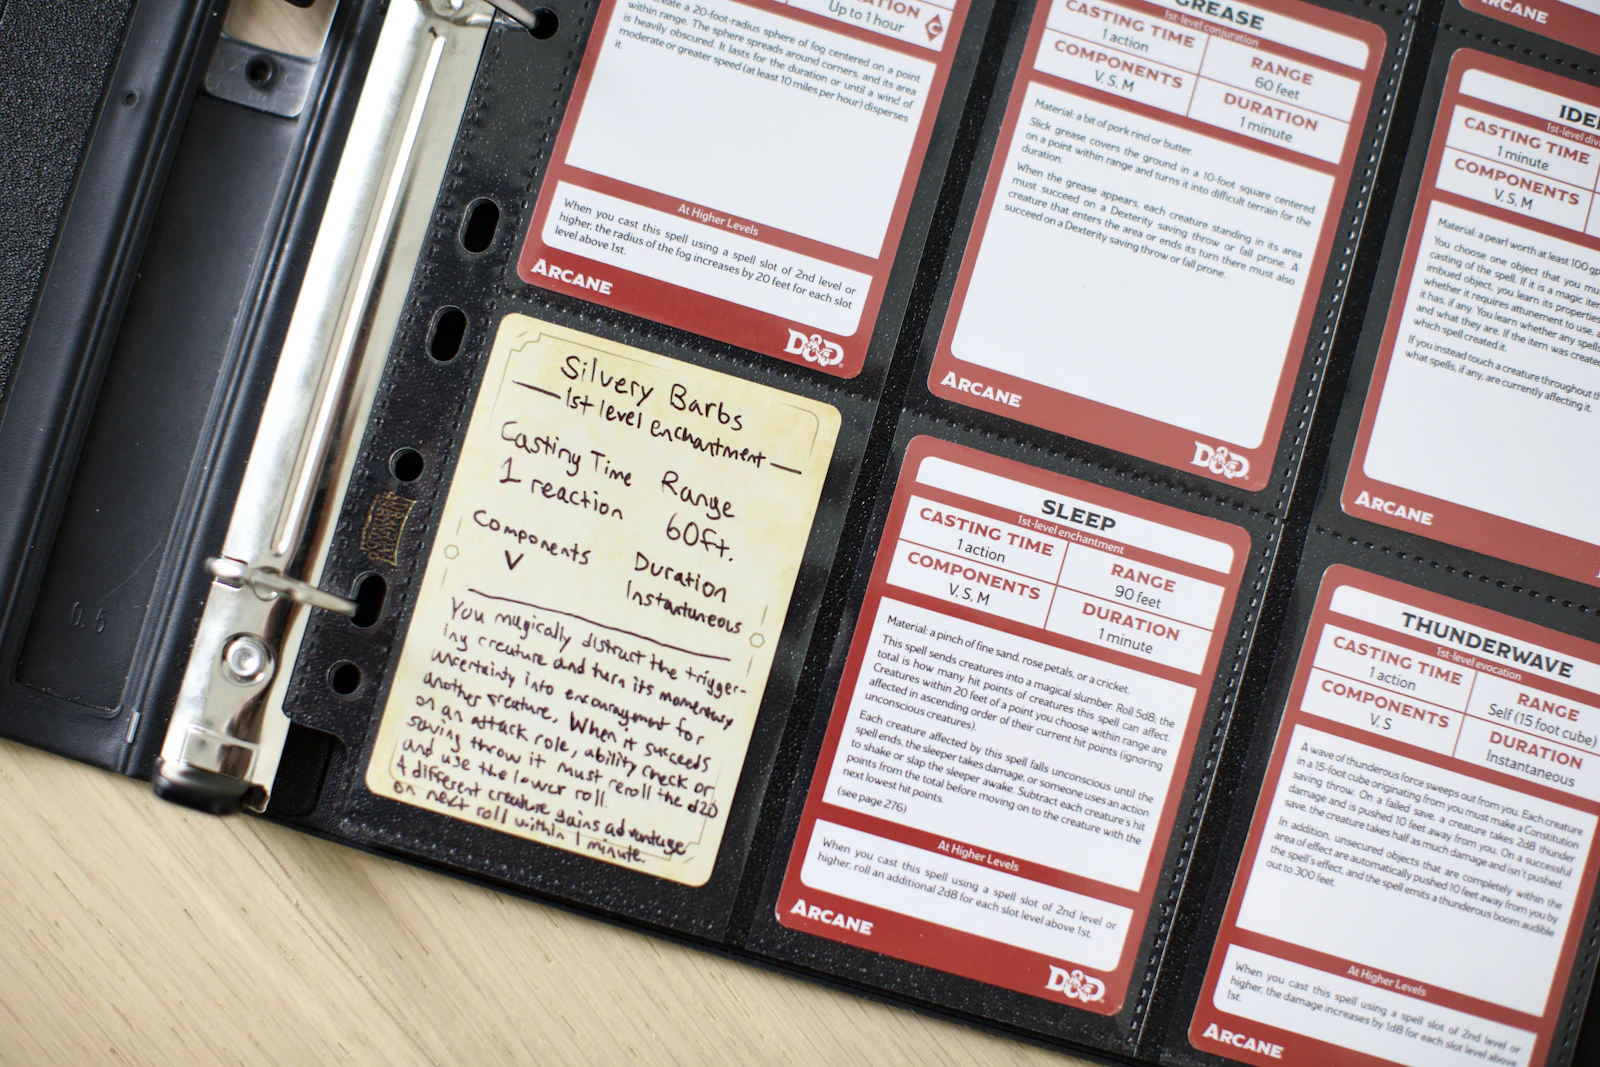 Up to 1 hour
create a 20-foot-radius sphere of fog centered on a point
within range. The sphere spreads around corners, and its area
is heavily obscured. It lasts for the duration or until a wind of
moderate or greater speed (at least 10 miles per hour) disperses
it.
At Higher Levels
When you cast this spell using a spell slot of 2nd level or
higher, the radius of the fog increases by 20 feet for each slot
level above 1st.
ARCANE
D&D
GREASE
1st-level conjuration
CASTING TIME
1 action
RANGE
60 feet
COMPONENTS
V, S, M
DURATION
1 minute
Material: a bit of pork rind or butter.
Slick grease covers the ground in a 10-foot square centered
on a point within range and turns it into difficult terrain for the
duration.
When the grease appears, each creature standing in its area
must succeed on a Dexterity saving throw or fall prone. A
creature that enters the area or ends its turn there must also
succeed on a Dexterity saving throw or fall prone.
ARCANE
D&D
ARCANE
CASTING TIME
1 minute
COMPONENTS
V, S, M
Material: a pearl worth at least 100 gp
You choose one object that you
casting of the spell. If it is a magic
imbued object, you learn its properties
whether it requires attunement to use,
it has, if any. You learn whether any
and what they are. If the item was
which spell created it.
If you instead touch a creature throughout
what spells, if any, are currently affecting it.
ARCANE
Silvery Barbs
1st level enchantment
Casting Time
1 reaction
Range
60ft.
Components
V
Duration
Instantuneous
You magically distract the trigger-
ing creature and turn its momentary
uncertainty into encouragment for
another creature. When it succeeds
on an attack role, ability check or
saving throw it must reroll the d20
and use the lower roll.
A different creature gains advantage
on next roll within 1 minute.
SLEEP
1st-level enchantment
CASTING TIME
1 action
RANGE
90 feet
COMPONENTS
V, S, M
DURATION
1 minute
Material: a pinch of fine sand, rose petals, or a cricket.
This spell sends creatures into a magical slumber. Roll 5d8; the
total is how many hit points of creatures this spell can affect.
Creatures within 20 feet of a point you choose within range are
affected in ascending order of their current hit points (ignoring
unconscious creatures).
Each creature affected by this spell falls unconscious until the
spell ends, the sleeper takes damage, or someone uses an action
to shake or slap the sleeper awake. Subtract each creature's hit
points from the total before moving on to the creature with the
next lowest hit points.
(see page 276)
At Higher Levels
When you cast this spell using a spell slot of 2nd level or
higher, roll an additional 2d8 for each slot level above 1st.
ARCANE
D&D
THUNDERWAVE
1st-level evocation
CASTING TIME
1 action
RANGE
Self (15 foot cube)
COMPONENTS
V, S
DURATION
Instantaneous
A wave of thunderous force sweeps out from you. Each creature
in a 15-foot cube originating from you must make a Constitution
saving throw. On a failed save, a creature takes 2d8 thunder
damage and is pushed 10 feet away from you. On a successful
save, the creature takes half as much damage and isn't pushed.
In addition, unsecured objects that are completely within the
area of effect are automatically pushed 10 feet away from you by
the spell's effect, and the spell emits a thunderous boom audible
out to 300 feet.
At Higher Levels
When you cast this spell using a spell slot of 2nd level or
higher, the damage increases by 1d8 for each slot level above
1st.
ARCANE
0.5